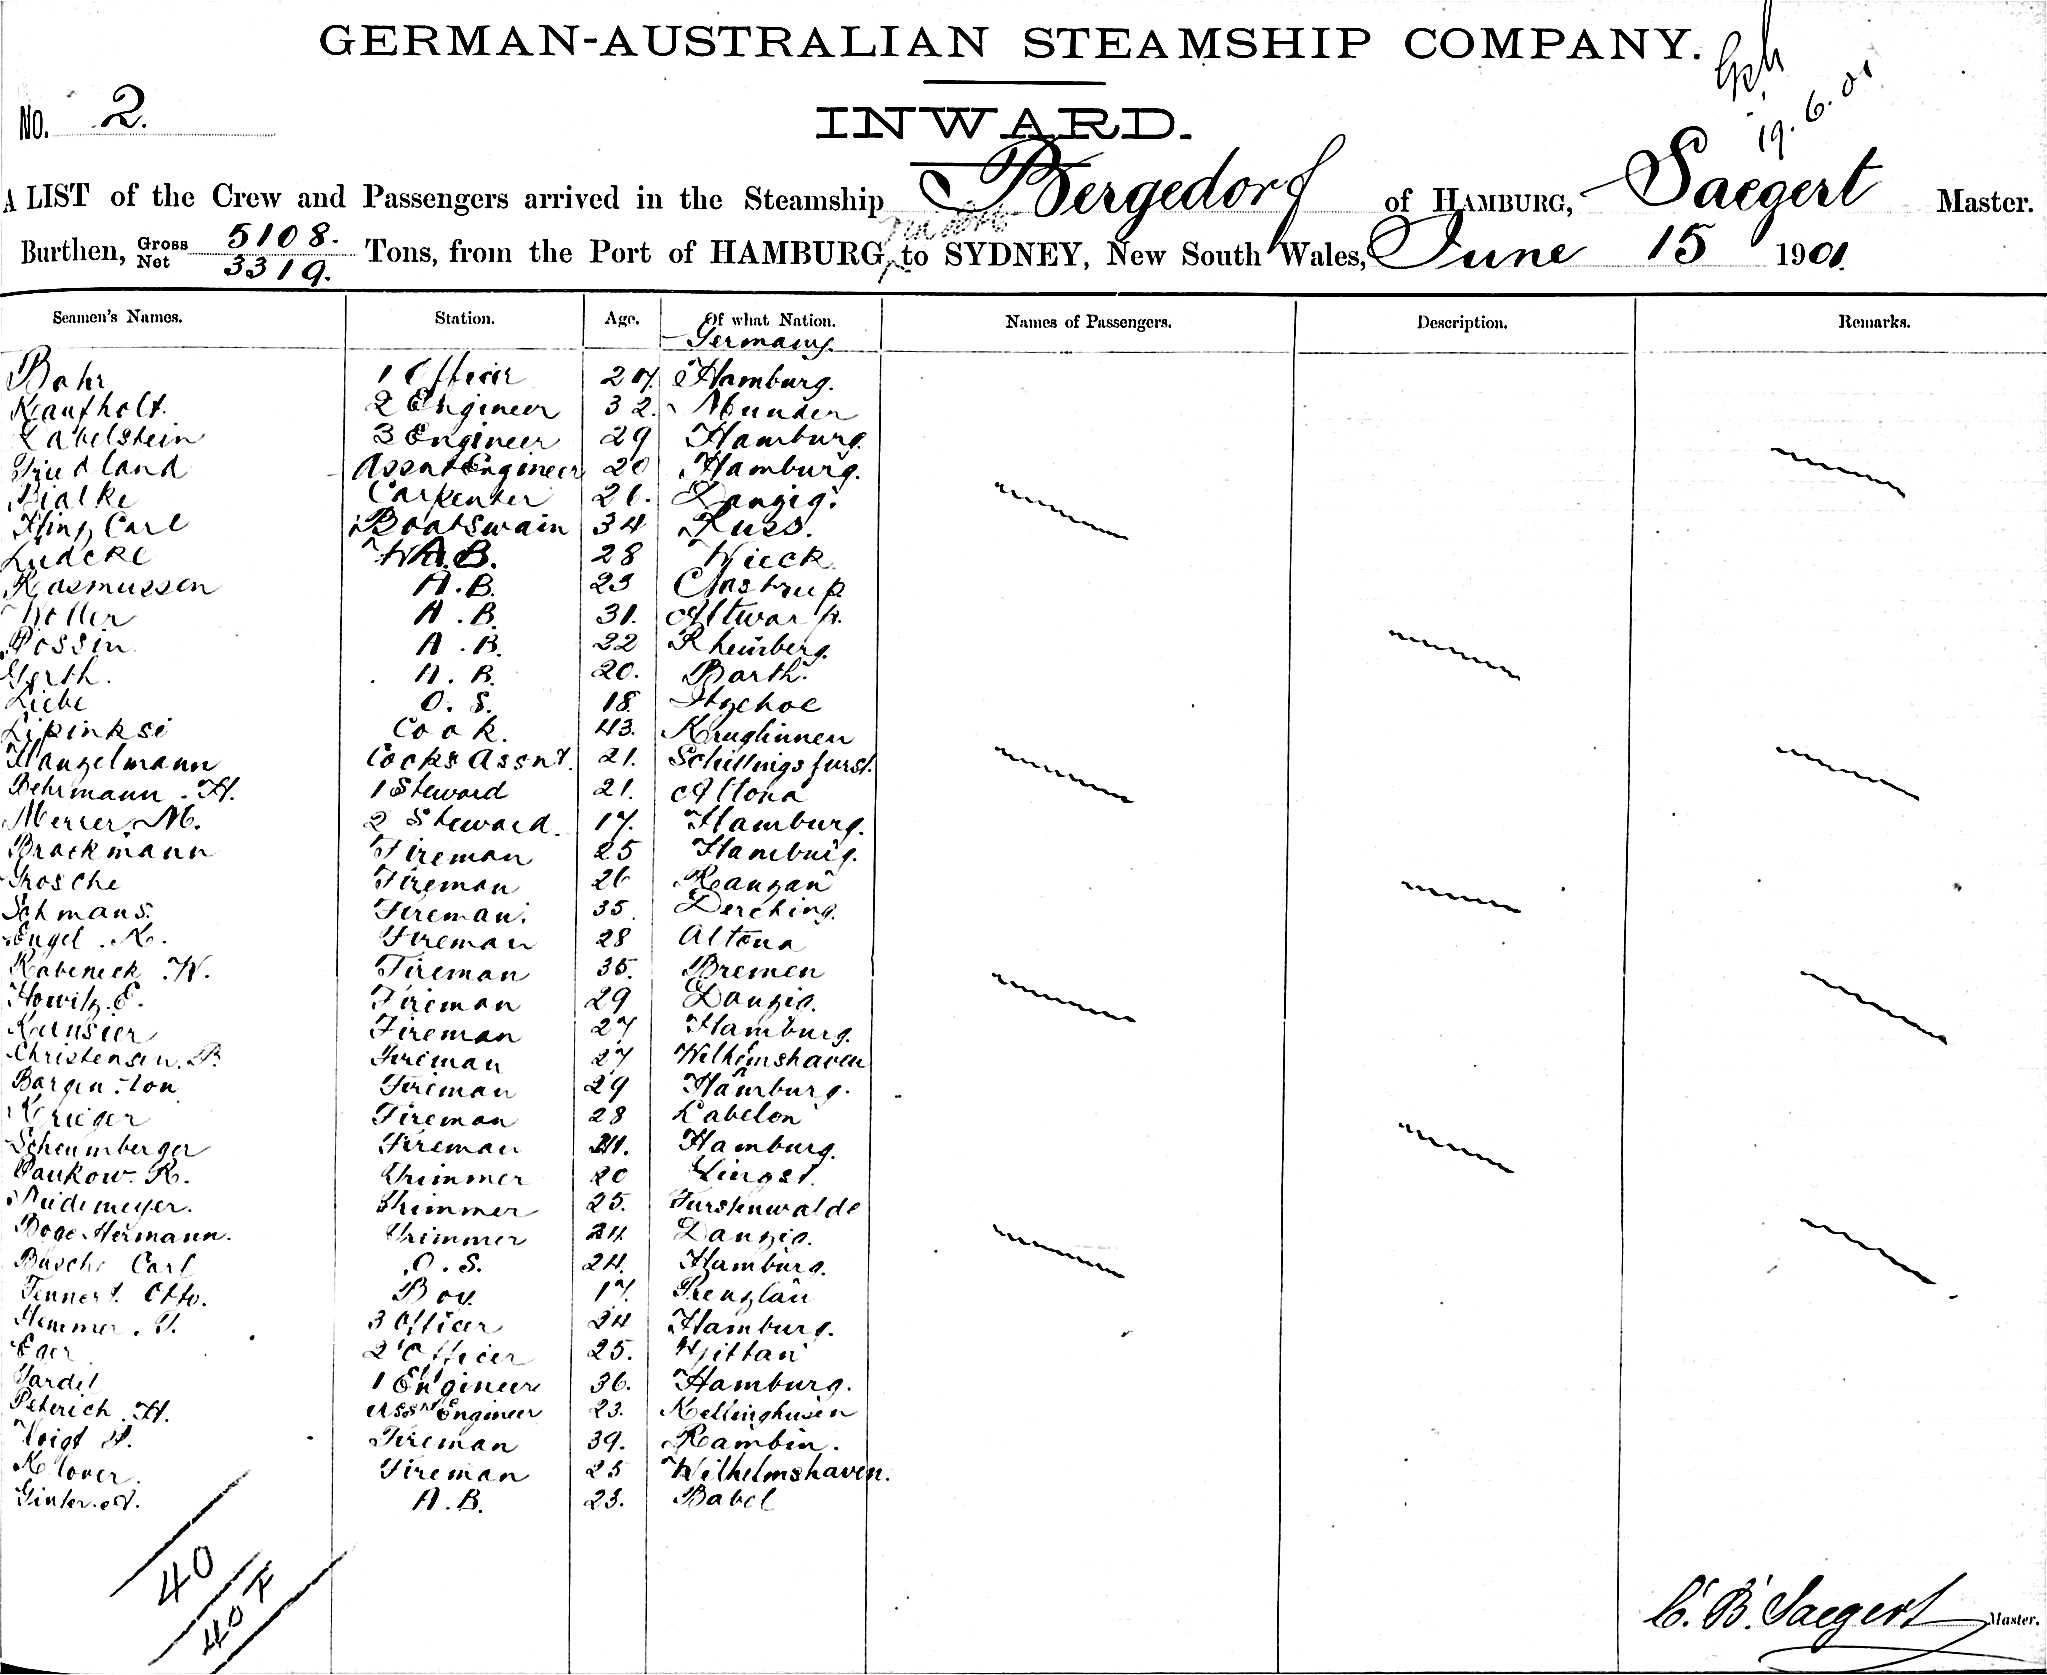 GERMAN-AUSTRALIAN STEAMSHIP COMPANY.
19.6.01
No. 2.
INWARD.
A LIST of the Crew and Passengers arrived in the Steamship Bergedorf of HAMBURG, Saegert Master.
Burthen, Gross 5108. Net 3319. Tons, from the Port of HAMBURG, to SYDNEY, New South Wales, June 15 1901.
Seamen's Names. Station. Age. Of what Nation. Names of Passengers. Description. Remarks.
Germany.
Bahr 1 Officer 27. Hamburg.
Kaufholt. 2 Engineer 32. Munden
Labelstein 3 Engineer 29 Hamburg.
Friedland Assnt Engineer 20 Hamburg.
Bialke Carpenter 21. Danzig.
Kling Carl Boatswain 34 Russ.
Ludcke A.B. 28 Wieck
Rasmussen A.B. 23 Anstrup
Woller A.B. 31. Altwarp.
Possin A.B. 22 Rheinberg.
Gerth. A.B. 20. Barth.
Liebe O.S. 18. Itzehoe
Lipinksi Cook. 43. Kruglinnen
Hangelmann Cocks Assnt. 21. Schillingsfurst.
Behrmann. H. 1 Steward 21. Altona
Merrer. M. 2 Steward. 17. Hamburg.
Brackmann Fireman 25 Hamburg.
Grosche Fireman 26
Schmans. Fireman. 35. Derching.
Engel. K. Fireman 28 Altona
Rabeneck W. Fireman 35. Bremen
Howitz. E. Fireman 29 Danzig.
Fireman 27 Hamburg.
Christensen. P. Fireman 27 Wilhemshaven
Bargin-ton Fireman 29 Hamburg.
Krieger Fireman 28 Labelon
Scheumberger Fireman Hamburg.
Pankow. R. Trimmer 20 Zingst.
Niedemeyer. Trimmer 25. Furstenwalde
Boge Hermann. Trimmer 24 Danzig.
Busche Carl O.S. 24. Hamburg.
Tennert. Otto. Boy. 17. Prenzlau
Hemmer. T. 3 Officer 24 Hamburg.
Eger 2 Officer 25. Zittau
Tardel 1 Engineer 36. Hamburg.
Peterich. H. Assnt Engineer 23. Kellinghusen
Voigt Fireman 39. Rambin.
Klover. Fireman 25 Wilhelmshaven.
Ginter. A. A.B. 23. Babel
40
40 F
C. B. Saegert Master.